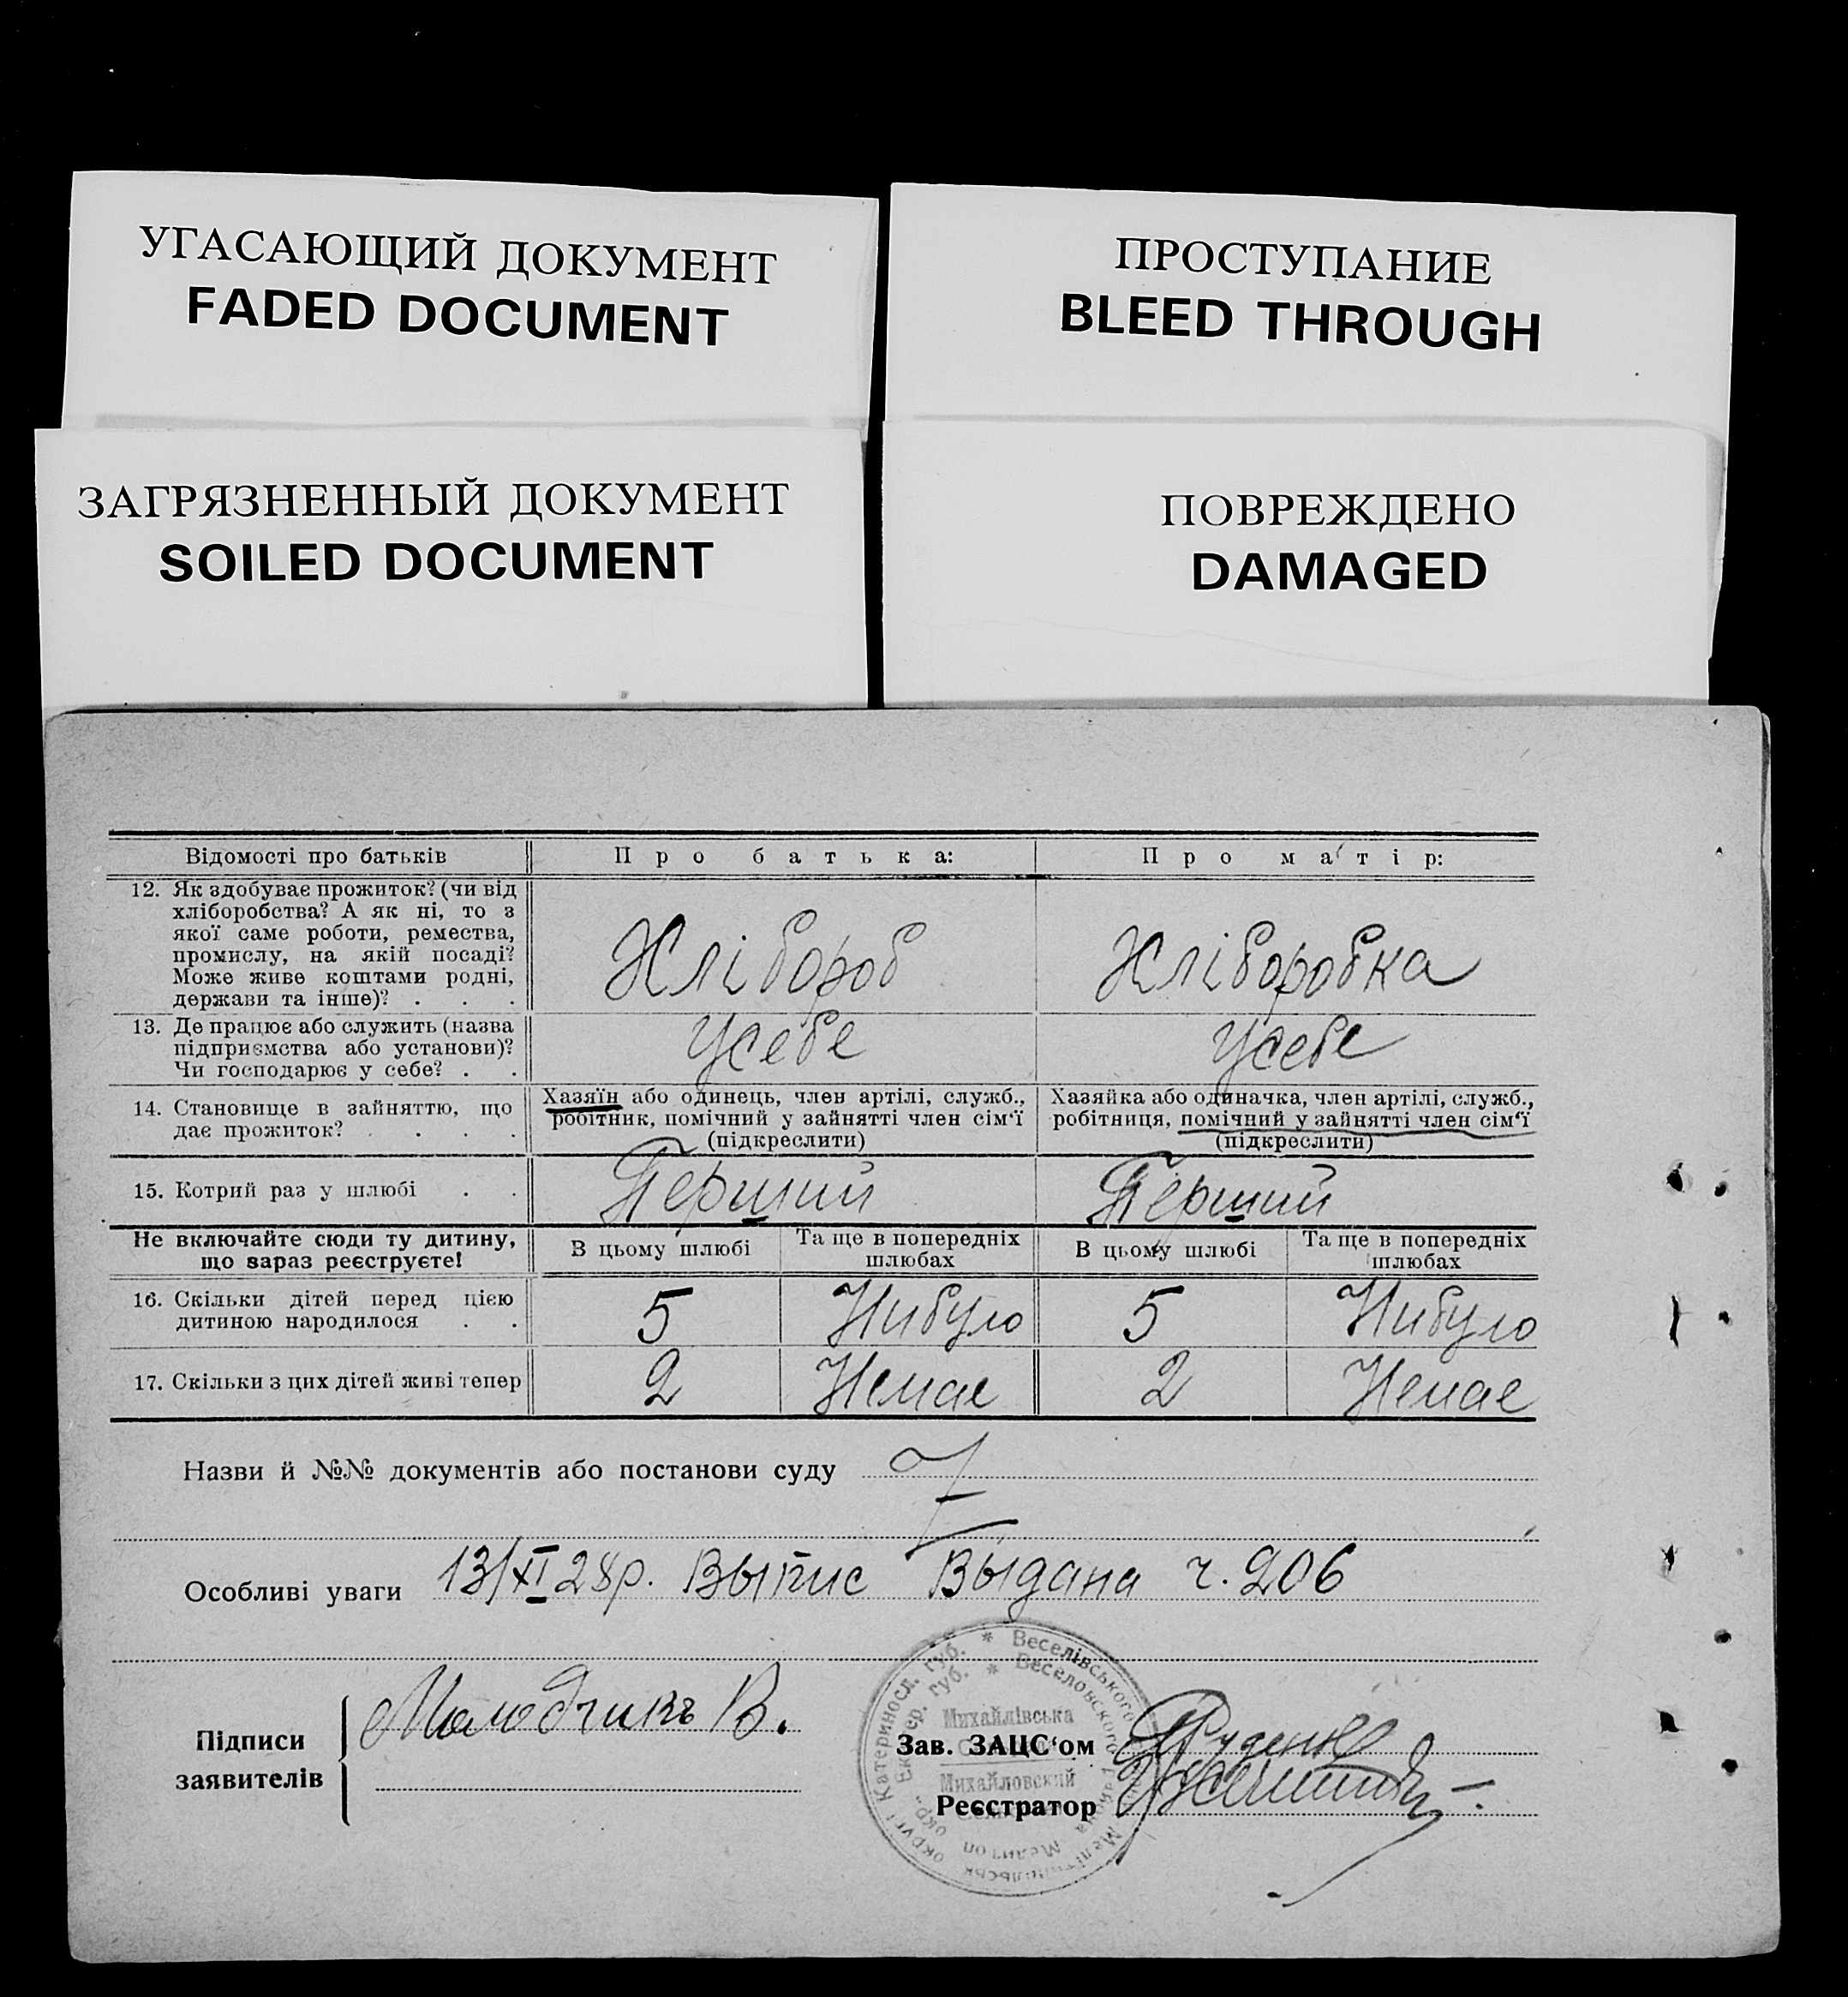 УГАСАЮЩИЙ ДОКУМЕНТ
FADED DOCUMENT
ПРОСТУПАНИЕ
BLEED THROUGH
ЗАГРЯЗНЕННЫЙ ДОКУМЕНТ
SOILED DOCUMENT
ПОВРЕЖДЕНО
DAMAGED
Відомості про батьків
Про батька:
Про матір:
12. Як здобуває прожиток? (чи від
хліборобства? А як ні, то з
якої саме роботи, ремества,
промислу, на якій посаді?
Може живе коштами родні,
держави та інше)? . . .
Хлібороб
Хліборобка
13. Де працює або служить (назва
підприємства або установи)?
Чи господарює у себе? . .
Усебе
Усебе
14. Становище в зайняттю, що
дає прожиток? . . . .
Хазяїн або одинець, член артілі, служб.,
робітник, помічний у зайнятті член сім‘ї
(підкреслити)
Хазяйка або одиначка, член артілі, служб.,
робітниця, помічний у зайнятті член сім‘ї
(підкреслити)
15. Котрий раз у шлюбі . .
Перший
Перший
Не включайте сюди ту дитину,
що зараз реєструєте!
В цьому шлюбі
Та ще в попередніх
шлюбах
В цьому шлюбі
Та ще в попередніх
шлюбах
16. Скільки дітей перед цією
дитиною народилося . .
5
Нибуло
5
Нибуло
17. Скільки з цих дітей живі тепер
2
Немає
2
Немає
Назви й №№ документів або постанови суду
Особливі уваги 13/XI 28р. Выпис Выдана ч. 206
Підписи
заявителів
Молодчикъ В.
Зав. ЗАЦС‘ом Руденко
Реєстратор
Катериносл. губ. * Веселівського
Екатер. губ. * Веселовского района
Михайлівська
Михайловский